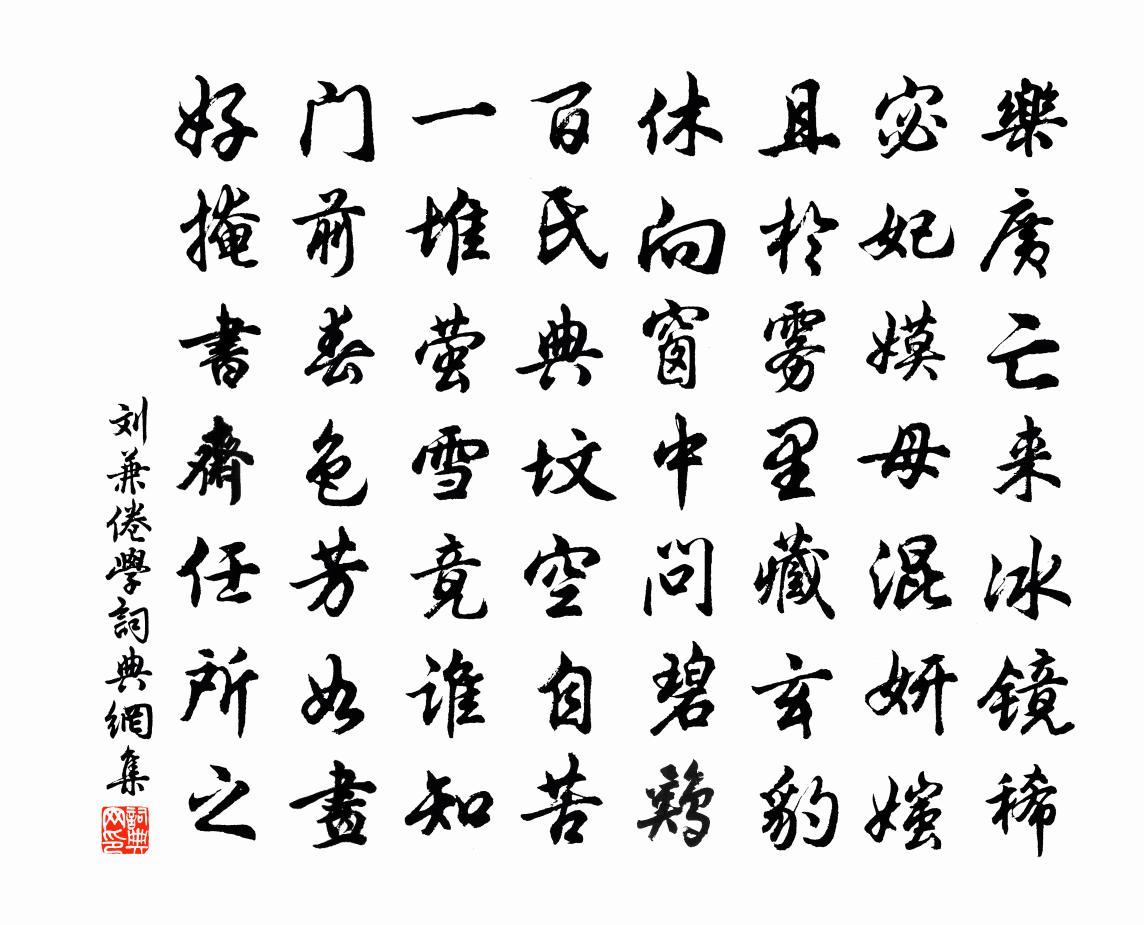 樂广亡来冰镜稀
宓妃嫫母混妍媸
且於雾里藏玄豹
休向窗中问碧鸡
百氏典坟空自苦
一堆萤雪竟谁知
门前春色芳如畫
好掩書齋任所之
刘兼倦學詞典網集
詞典网印